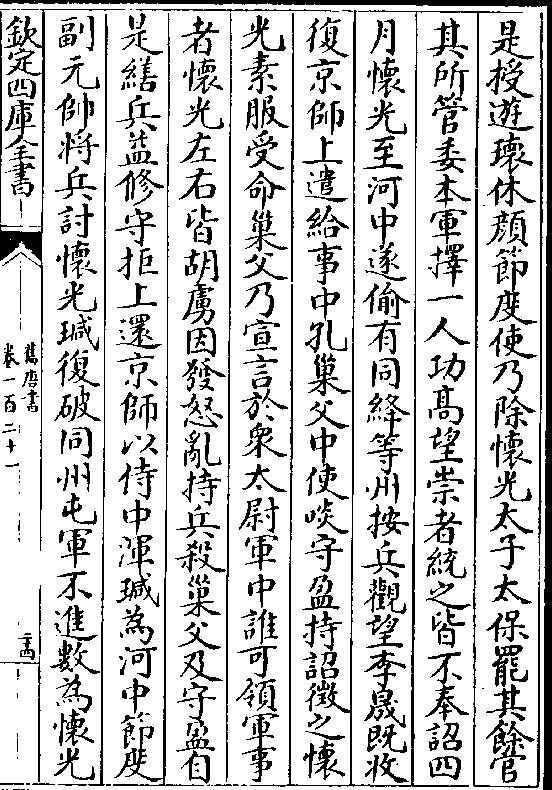 是授遊瓌休顔節度使乃除懷光太子太保罷其餘官
其所管委本軍擇一人功髙望崇者統之皆不奉詔四
月懷光至河中遂偷有同絳等州按兵觀望李晟既收
復京師上遣給事中孔巢父中使啖守盈持詔徴之懷
光素服受命巢父乃宣言於衆太尉軍中誰可領軍事
者懷光左右皆胡虜因發怒亂持兵殺巢父及守盈自
是繕兵益修守拒上還京師以侍中渾瑊為河中節度
副元帥將兵討懷光瑊復破同州屯軍不進數為懷光
欽定四庫全書
舊唐書
卷一百二十一
二十四